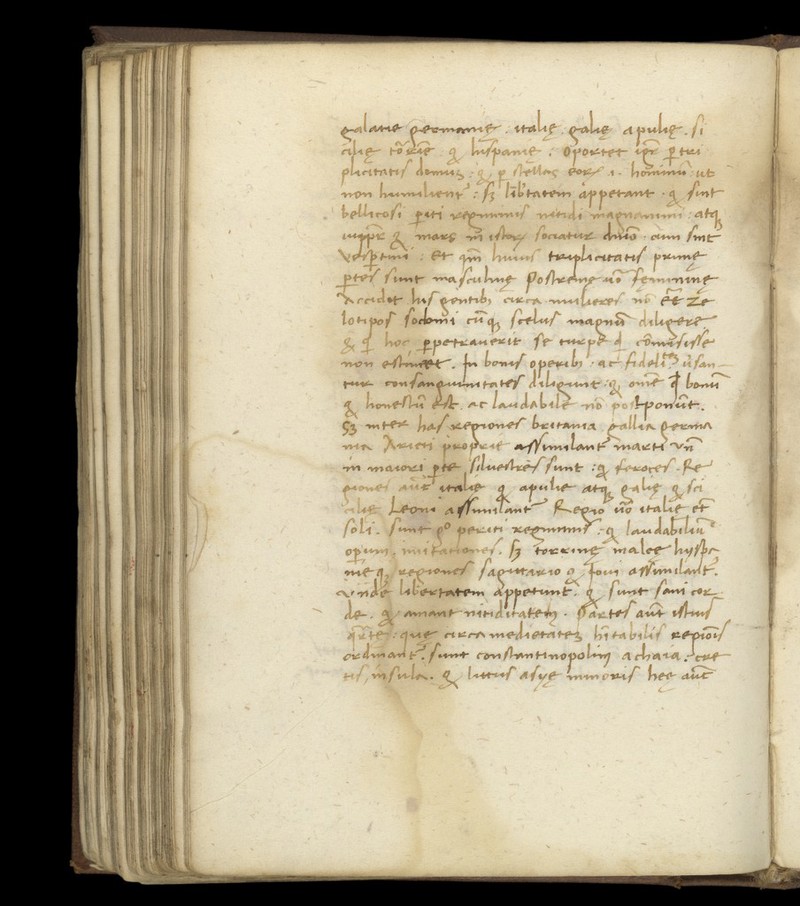 galatie germanię . italię galię apulię . si
cilię torrię & hispanię . oportet igr̃ p tri
plicitatis domuʒ : & p stellas eorʒ .i. hominũ . ut
non humilient̃ : sʒ lib̃tatem appetant . & sint
bellicosi periti regiminis nitidi magnanimi : atqʒ
iuppr̃ & mars in istorʒ sociatur dñio cum sint
vesp̃tini : Et qm̃ huius triplicitatis primę
ptes sunt masculinę Postremę uõ feminine
Accidet his gentib; circa mulieres nõ eẽ ze
lotipos sodomi cũqʒ scelus magnũ diligere
& q̃ hoc ppetraverit se turpe q̃ cõmisisse
non estimet . In bonis operib; . ac fidelit̃ usan-
tur consanguinitates diligunt : & omẽ q̃ bonũ
& honestũ est . ac laudabile nõ postponũt .
Sʒ inter has regiones britania gallia germa
nia Arieti proprie assimilant̃ marti uñ
in maiori pte silvestres sunt : & feroces . Re
giones aut̃ italię & apulie atqʒ galię & sci
cilię Leoni assimilant̃ Regio uõ italię et̃
soli . sunt g° periti regiminis : & laudabiliũ
op̃um . imitationes . sʒ torrinę malee hyspa
nieqʒ regiones sagittario & Iovi assimilant̃ .
vnde libertatem appetunt . & sunt sani cor
de . & amant nitiditatem . Partes aut̃ istius
q̃rtes : quę circa medietateʒ h̃itabilis regiõis
ordinant̃ . sunt constantinopolim achaia . cre
tis, insula . & litus asyę minoris heę aut̃